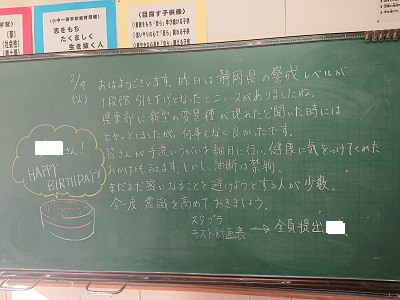 (小中一貫学校教育目標)
志をもち
たくましく
生き抜く人
《目指す子供像》
2/9
(火)
おはようございます。昨日は静岡県の警戒レベルが
1段階引き下げとなったとニュースがありましたね。
県東部に新型の変異種が現れたと聞いた時には
ヒヤッとしましたが、何事もなく良かったです。
皆さんが手洗いうがいを細目に行い、健康に気をつけてくれた
おかげと言えます。しかし、油断は禁物。
まだまだ密になることを避けようとする人が少数。
今一度意識を高めておきましょう。
スタプラ
テスト計画表 → 全員提出
さん!
HAPPY
BIRTHDAY!